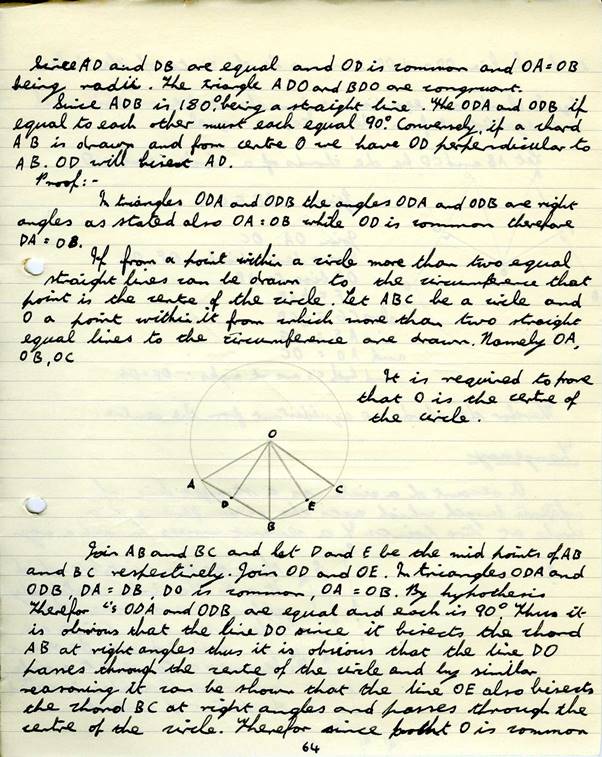 Since AD and DB are equal and OD is common and OA = OB
being radii. The triangle ADO and BDO are congruent.
Since ADB is 180° being a straight line. The ODA and ODB if
equal to each other must each equal 90°. Conversely, if a chord
A'B is drawn and from centre O we have OD perpendicular to
AB. OD will bisect AD.
Proof:-
In triangles ODA and ODB the angles ODA and ODB are right
angles as stated also OA = OB while OD is common therefore
DA = OB.
If from a point within a circle more than two equal
straight lines can be drawn to the circumference that
point is the centre of the circle. Let ABC be a circle and
O a point within it from which more than two straight
equal lines to the circumference are drawn. Namely OA,
OB, OC
It is required to prove
that O is the centre of
the circle.
O
A
C
D
E
B
Join AB and BC and let D and E be the mid points of AB
and BC respectively. Join OD and OE. In triangles ODA and
ODB, DA = DB, DO is common, OA = OB. By hypothesis
Therefor ODA and ODB are equal and each is 90° Thus it
is obvious that the line DO since it bisects the chord
AB at right angles thus it is obvious that the line DO
passes through the centre of the circle and by similar
reasoning it can be shown that the line OE also bisects
the chord BC at right angles and passes through the
centre of the circle. Therefor since O is common
64